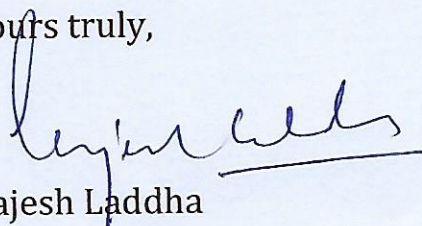 ours truly,
ajesh Laddha